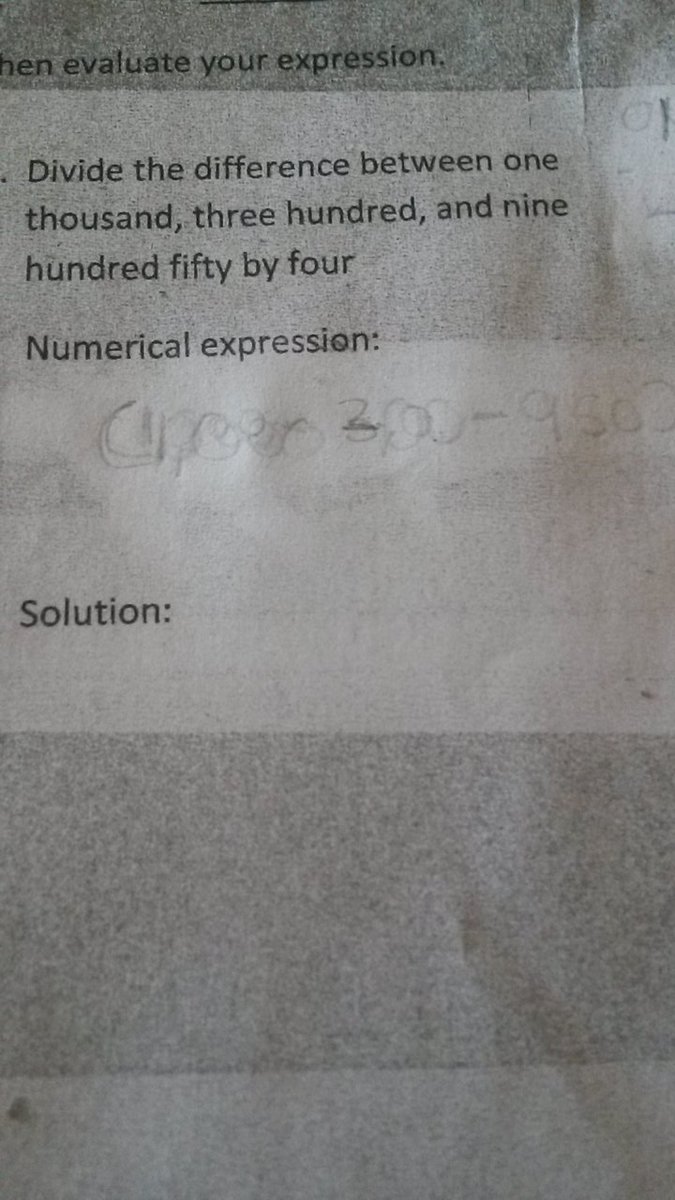 hen evaluate your expression.
. Divide the difference between one
thousand, three hundred, and nine
hundred fifty by four
Numerical expression:
Solution: